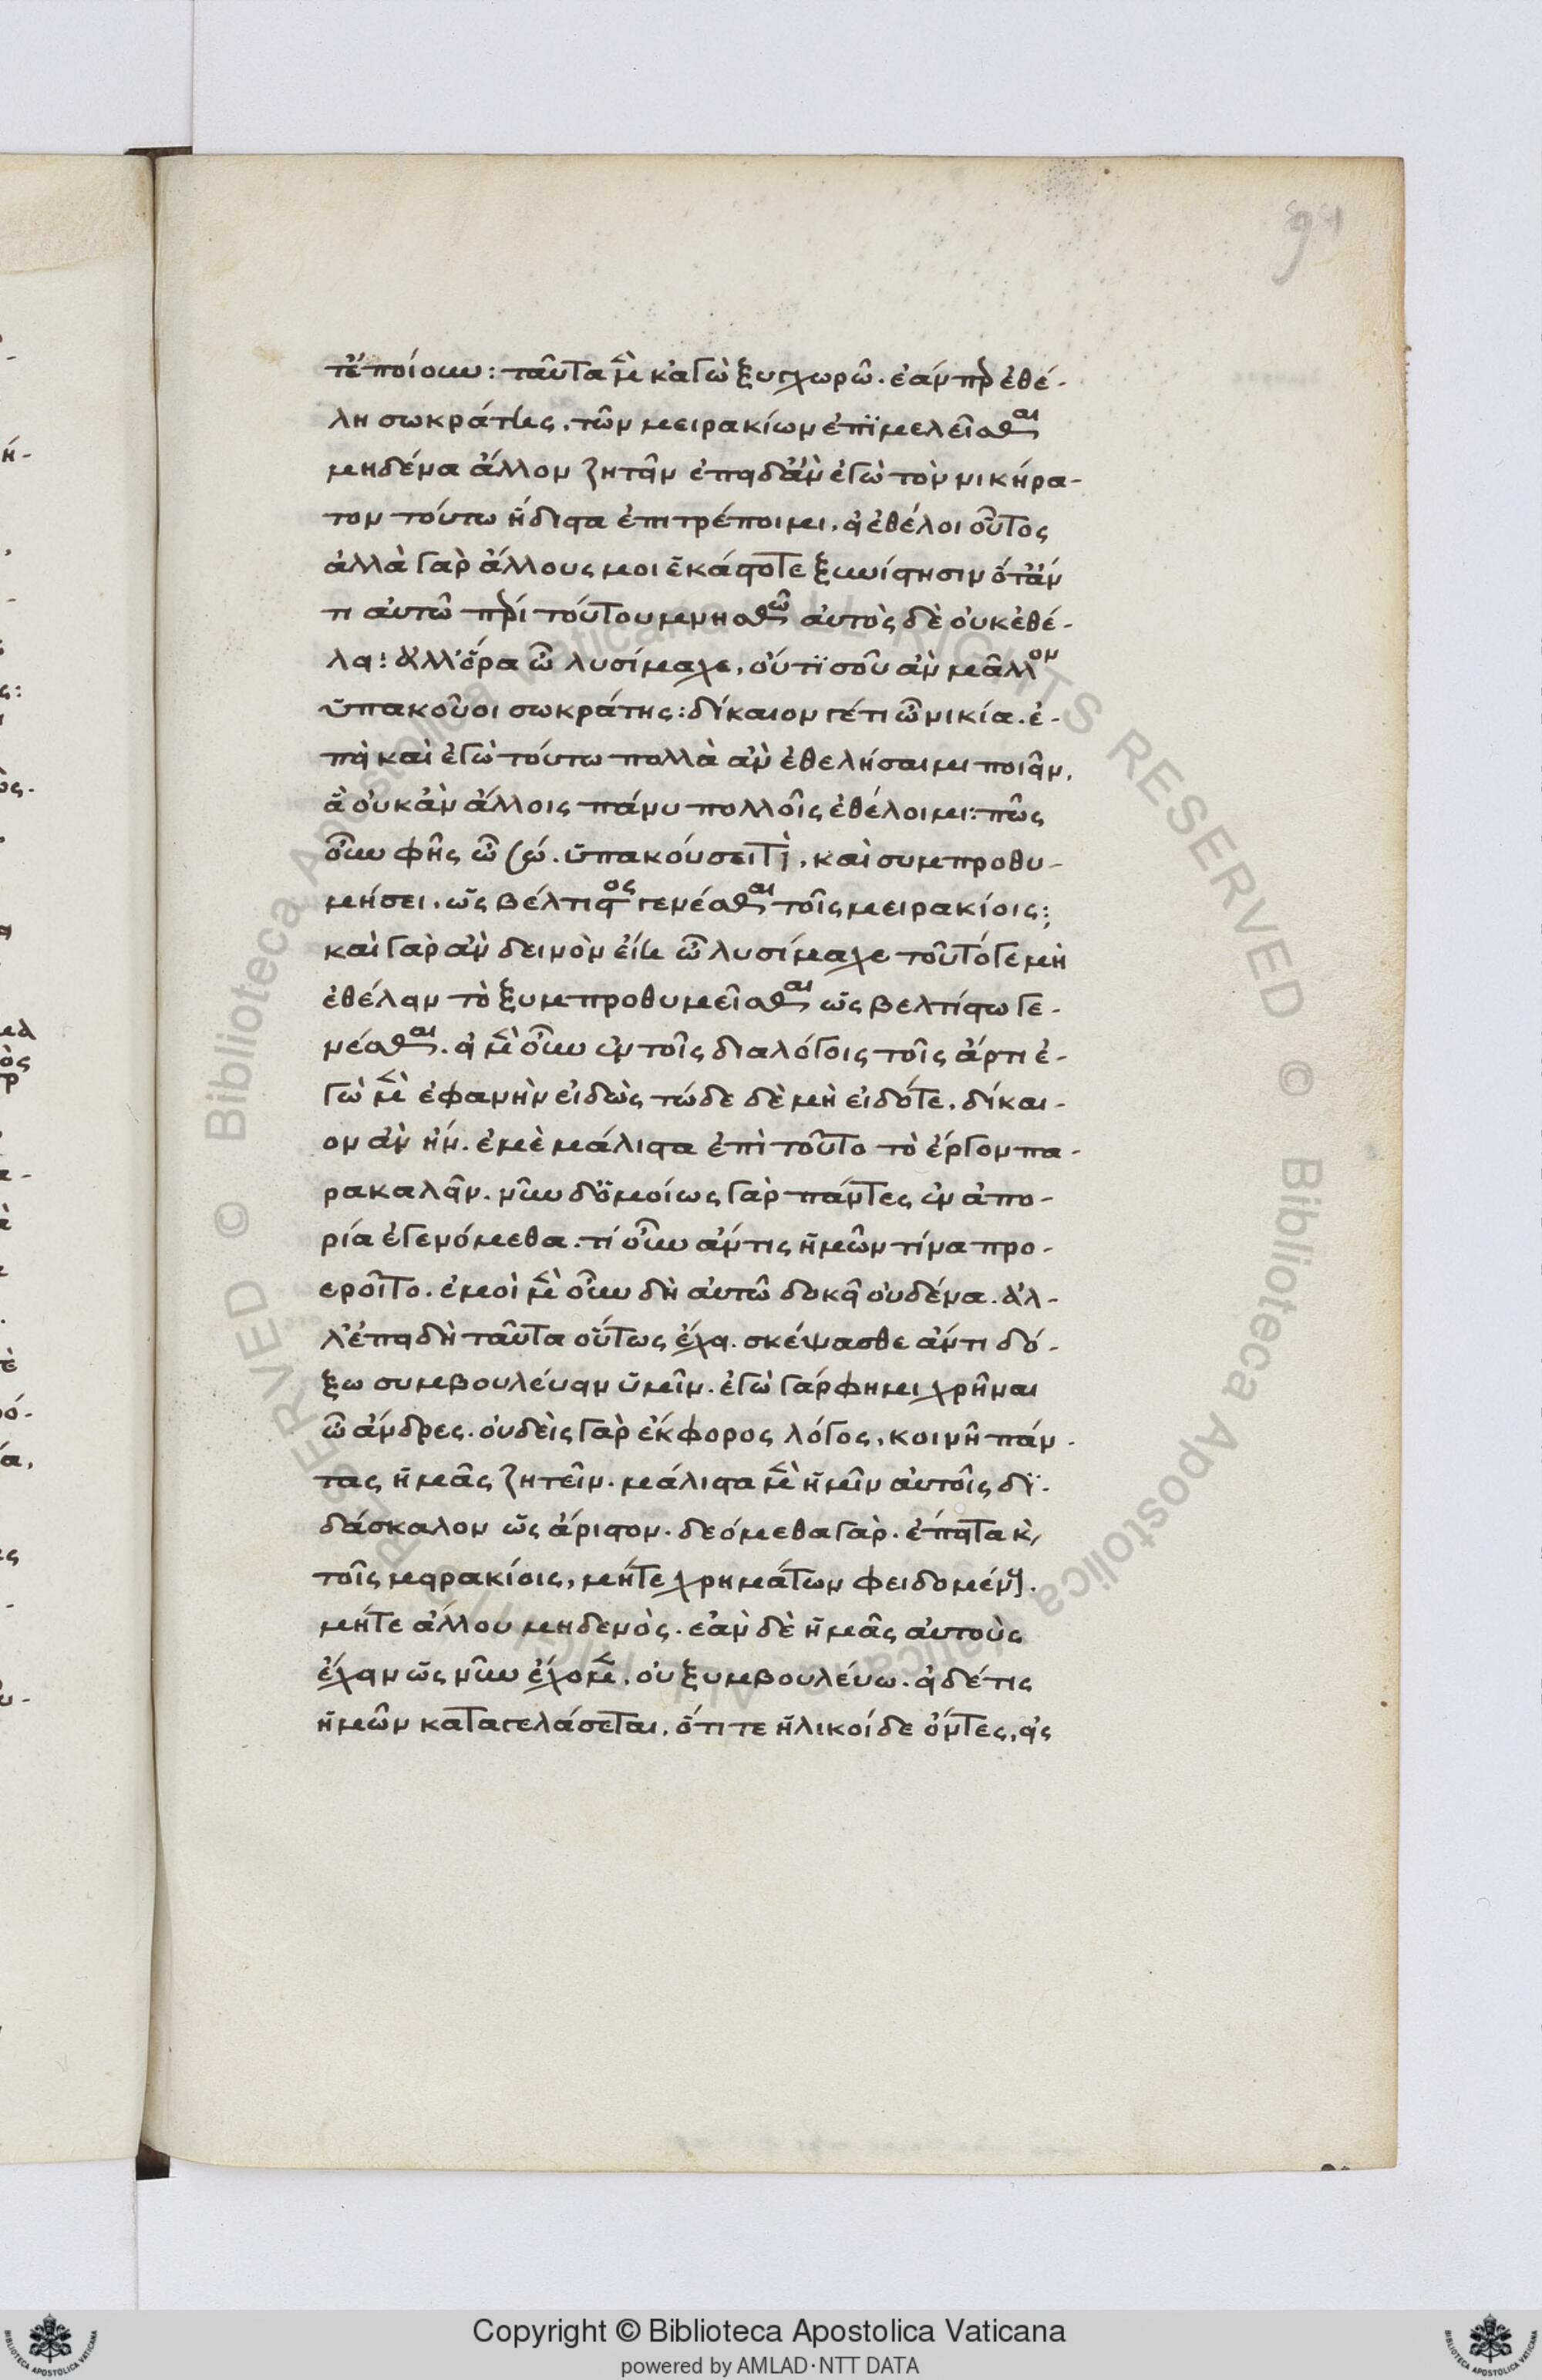 τἐποίουν: ταῦτα μὲν κἀγὼ ξυγχωρῶ. ἐάνπερ ἐθέ-
λη σωκράτης. τῶν μειρακίων ἐπϊμελεῖσθαι
μηδένα ἄλλον ζητεῖν ἐπειδἂν ἐγὼ τὸν νικήρα-
τον τούτω ἥδιστα ἐπιτρέποιμι, εἰ ἐθέλοι οὗτος
ἀλλὰ γὰρ ἄλλους μοι ἑκάστοτε ξυνίστησιν ὅτἄν
τι αὐτῶ περὶ τούτου μνησθῶ αὐτὸς δὲ οὐκ ἐθέ-
λει: ἀλλ' ὅρα ὦ λυσίμαχε, οὔτϊ σοῦ ἂν μᾶλλον
ὑπακούοι σωκράτης: δίκαιον γέτι ὦ νικία. ἐ-
πεὶ καὶ ἐγὼ τούτω πολλὰ ἂν ἐθελήσαιμι ποιεῖν,
ἃ οὐκ ἂν ἄλλοις πάνυ πολλοῖς ἐθέλοιμι: πῶς
οὖν φῆς ὦ σώ. ὑπακούσειτὶ, καὶ συμπροθυ-
μήσει. ὡς βέλτιστος γενέσθαι τοῖς μειρακίοις:
καὶ γὰρ ἂν δεινὸν εἴη ὦ λυσίμαχε τοῦτό γε μὴ
ἐθέλειν τὸ ξυμπροθυμεῖσθαι ὡς βελτίστω γε-
νέσθαι. εἰ μὲν οὖν ἐν τοῖς διαλόγοις τοῖς ἄρτι ἐ-
γὼ μὲν ἐφαινὴν εἰδὼς τώδε δὲ μὴ εἰδότε. δίκαι-
ον ἂν ἦν. ἐμὲ μάλιστα ἐπὶ τοῦτο τὸ ἔργον πα-
ρακαλεῖν. νῦν δ' ὁμοίως γὰρ πάντες ἐν ἀπο-
ρία ἐγενόμεθα. τί οὖν ἄν τις ἡμῶν τίνα προ-
εροῖτο. ἐμοὶ μὲν οὖν δὴ αὐτῶ δοκεῖ οὐδένα. ἀλ-
λ' ἐπειδὴ ταῦτα οὕτως ἔχει. σκέψασθε ἄν τι δό-
ξω συμβουλεύειν ὑμῖν. ἐγὼ γάρ φημι χρῆναι
ὦ ἄνδρες. οὐδεὶς γὰρ ἔκφορος λόγος. κοινῆ πάν-
τας ἡμᾶς ζητεῖν. μάλιστα μὲν ἡμῖν αὐτοῖς δϊ-
δάσκαλον ὡς ἄριστον. δεόμεθα γὰρ. ἔπειτα καὶ
τοῖς μειρακίοις, μήτε χρημάτων φειδομένους.
μήτε ἄλλου μηδενὸς. ἐὰν δὲ ἡμᾶς αὐτοὺς
ἔχειν ὡς νῦν ἔχομεν. οὐ ξυμβουλεύω. εἰ δέ τις
ἡμῶν καταγελάσεται, ὅτι τε ἡλικοίδε ὄντες, εἰς
Copyright © Biblioteca Apostolica Vaticana
powered by AMLAD·NTT DATA